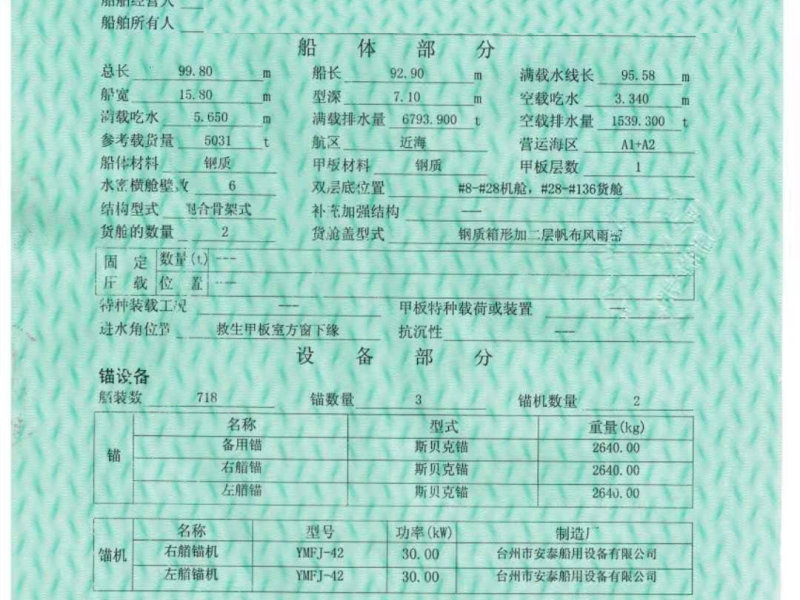 船舶经营人
船舶所有人
船 体 部 分
总长 99.80 m 船长 92.90 m 满载水线长 95.58 m
船宽 15.80 m 型深 7.10 m 空载吃水 3.340 m
满载吃水 5.650 m 满载排水量 6793.900 t 空载排水量 1539.300 t
参考载货量 5031 t 航区 近海 营运海区 A1+A2
船体材料 钢质 甲板材料 钢质 甲板层数 1
水密横舱壁数 6 双层底位置 #8-#28机舱，#28-#136货舱
结构型式 混合骨架式 补充加强结构 ---
货舱的数量 2 货舱盖型式 钢质箱形加二层帆布风雨密
固定 数量(t) ---
压载 位置 ---
特种装载工况 --- 甲板特种载荷或装置 ---
进水角位置 救生甲板室方窗下缘 抗沉性 ---
设 备 部 分
锚设备
舾装数 718 锚数量 3 锚机数量 2
名称 型式 重量(kg)
锚
备用锚 斯贝克锚 2640.00
右艏锚 斯贝克锚 2640.00
左艏锚 斯贝克锚 2640.00
名称 型号 功率(kW) 制造厂
锚机
右艏锚机 YMFJ-42 30.00 台州市安泰船用设备有限公司
左艏锚机 YMFJ-42 30.00 台州市安泰船用设备有限公司